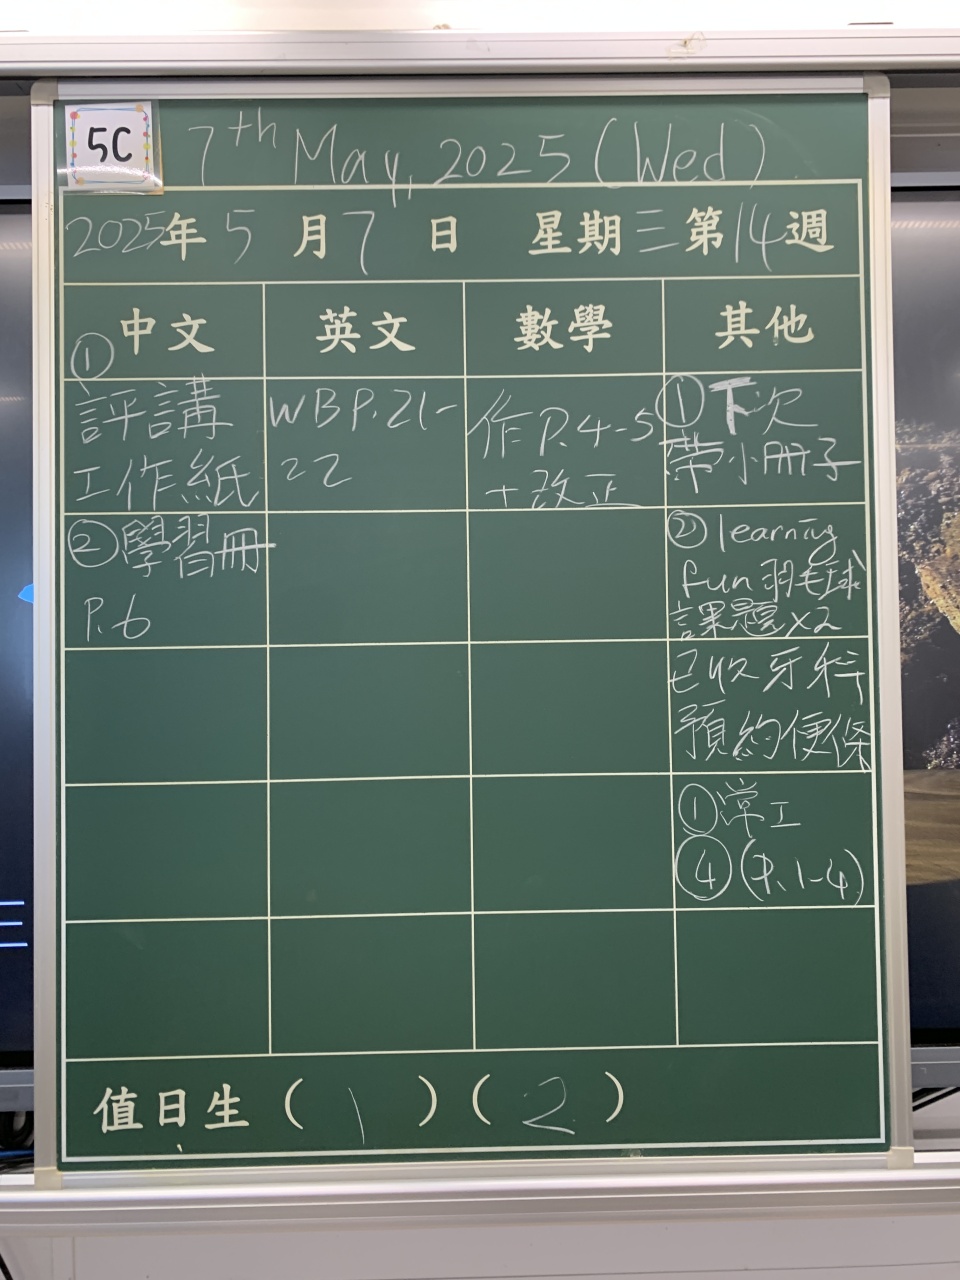 5C
7th May, 2025 (Wed)
2025年5月7日 星期三第14週
中文 英文 數學 其他
①
評講
工作紙
②學習冊
P.6
WBP.21-
22
作P.4-5
+改正
①下次
帶小冊子
②learning
fun羽毛球
課題x2
已收牙科
預約便條
①常工
④(P.1-4)
值日生(1)(2)